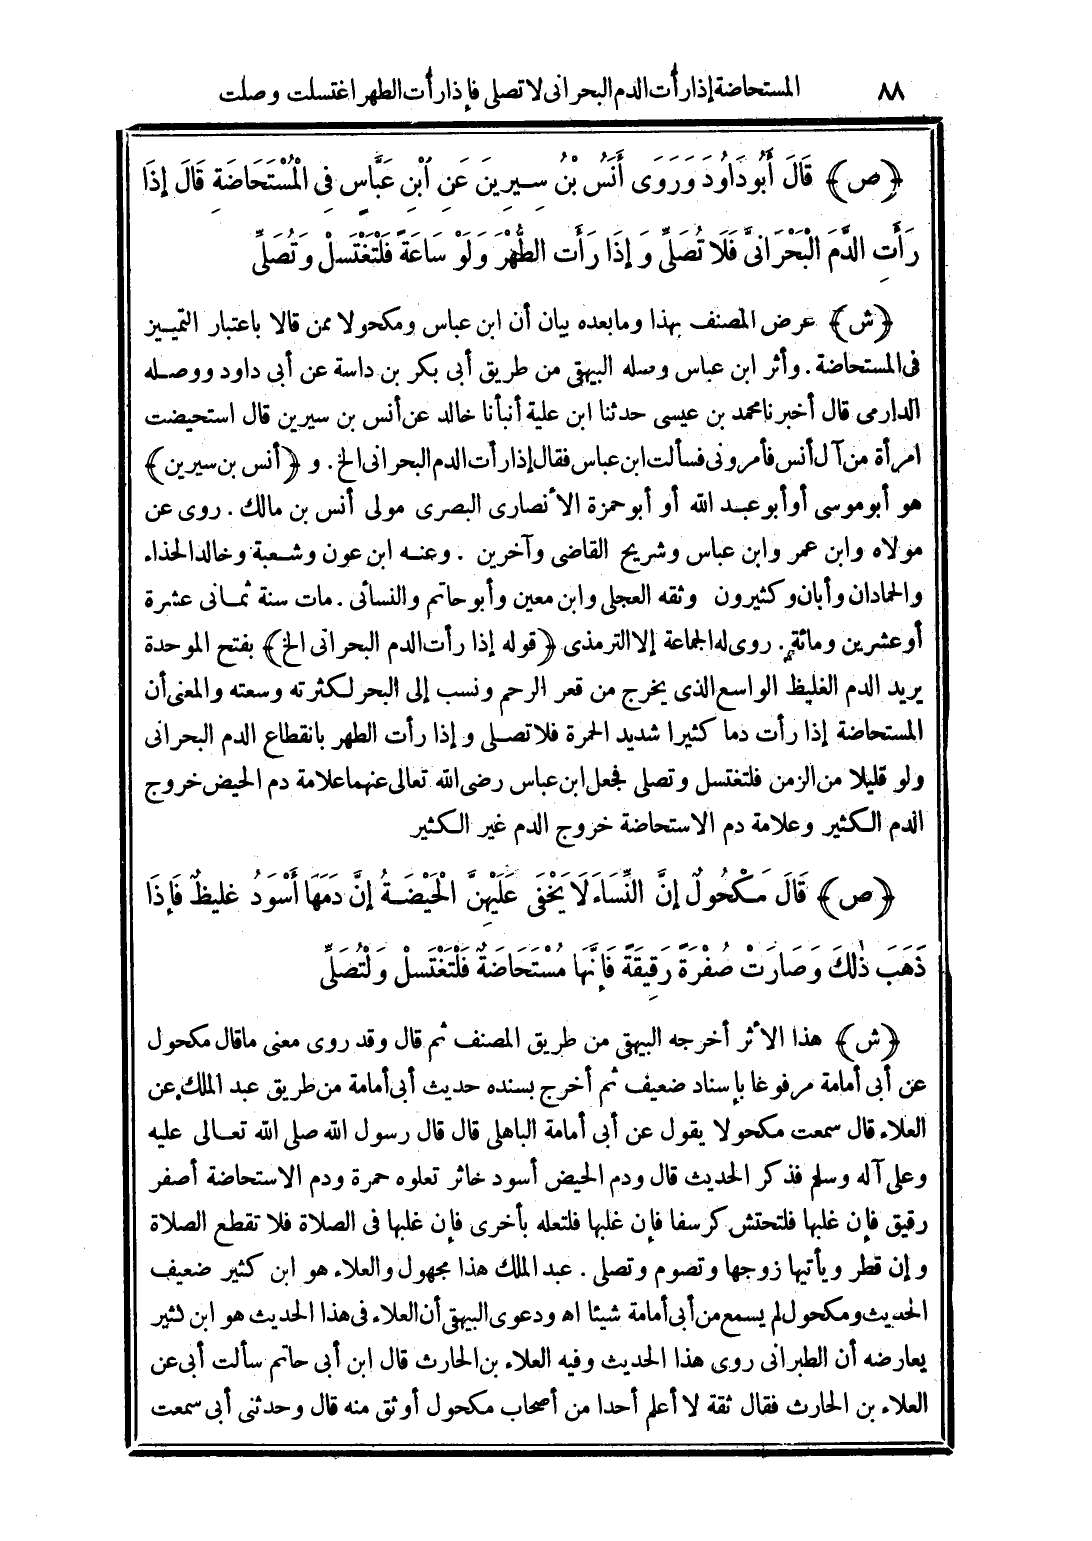 ٨٨ المستحاضة إذا رأت الدم البحرانى لا تصلى فإذا رأت الطهر اغتسلت وصلت
﴿ص﴾ قَالَ أَبُو دَاوُدَ وَرَوَى أَنَسُ بْنُ سِيرِينَ عَنِ ابْنِ عَبَّاسٍ فِى الْمُسْتَحَاضَةِ قَالَ إِذَا
رَأَتِ الدَّمَ الْبَحْرَانِىَّ فَلَا تُصَلِّى وَإِذَا رَأَتِ الطُّهْرَ وَلَوْ سَاعَةً فَلْتَغْتَسِلْ وَتُصَلِّى
﴿ش﴾ غرض المصنف بهذا وما بعده بيان أن ابن عباس ومكحولا ممن قالا باعتبار التمييز
فى المستحاضة. وأثر ابن عباس وصله البيهقى من طريق أبى بكر بن داسة عن أبى داود ووصله
الدارمى قال أخبرنا محمد بن عيسى حدثنا ابن علية أنبأنا خالد عن أنس بن سيرين قال استحيضت
امرأة من آل أنس فأمرونى فسألت ابن عباس فقال إذا رأت الدم البحرانى الخ. و﴿أنس بن سيرين﴾
هو أبو موسى أو أبو عبد الله أو أبو حمزة الأنصارى البصرى مولى أنس بن مالك. روى عن
مولاه وابن عمر وابن عباس وشريح القاضى وآخرين. وعنه ابن عون وشعبة وخالد الحذاء
والحمادان وأبان وكثيرون وثقه العجلى وابن معين وأبو حاتم والنسائى. مات سنة ثمانى عشرة
أو عشرين ومائة. روى له الجماعة إلا الترمذى ﴿قوله إذا رأت الدم البحرانى الخ﴾ بفتح الموحدة
يريد الدم الغليظ الواسع الذى يخرج من قعر الرحم ونسب إلى البحر لكثرته وسعته والمعنى أن
المستحاضة إذا رأت دما كثيرا شديد الحمرة فلا تصلى وإذا رأت الطهر بانقطاع الدم البحرانى
ولو قليلا من الزمن فلتغتسل وتصلى فجعل ابن عباس رضى الله تعالى عنهما علامة دم الحيض خروج
الدم الكثير وعلامة دم الاستحاضة خروج الدم غير الكثير
﴿ص﴾ قَالَ مَكْحُولٌ إِنَّ النِّسَاءَ لَا يَخْفَى عَلَيْهِنَّ الْحَيْضَةُ إِنَّ دَمَهَا أَسْوَدُ غَلِيظٌ فَإِذَا
ذَهَبَ ذٰلِكَ وَصَارَتْ صُفْرَةً رَقِيقَةً فَإِنَّهَا مُسْتَحَاضَةٌ فَلْتَغْتَسِلْ وَلْتُصَلِّى
﴿ش﴾ هذا الأثر أخرجه البيهقى من طريق المصنف ثم قال وقد روى معنى ما قال مكحول
عن أبى أمامة مرفوعا بإسناد ضعيف ثم أخرج بسنده حديث أبى أمامة من طريق عبد الملك عن
العلاء قال سمعت مكحولا يقول عن أبى أمامة الباهلى قال قال رسول الله صلى الله تعالى عليه
وعلى آله وسلم فذكر الحديث قال ودم الحيض أسود خاثر تعلوه حمرة ودم الاستحاضة أصفر
رقيق فإن غلبها فلتحتش كرسفا فإن غلبها فلتعله بأخرى فإن غلبها فى الصلاة فلا تقطع الصلاة
وإن قطر ويأتيها زوجها وتصوم وتصلى. عبد الملك هذا مجهول والعلاء هو ابن كثير ضعيف
الحديث ومكحول لم يسمع من أبى أمامة شيئا اه ودعوى البيهقى أن العلاء فى هذا الحديث هو ابن كثير
يعارضه أن الطبرانى روى هذا الحديث وفيه العلاء بن الحارث قال ابن أبى حاتم سألت أبى عن
العلاء بن الحارث فقال ثقة لا أعلم أحدا من أصحاب مكحول أوثق منه قال وحدثنى أبى سمعت